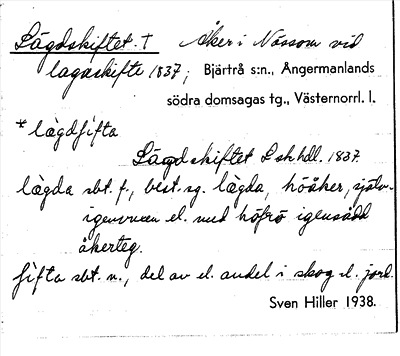 Lägdskiftet. † Åker i Nässom vid
lagaskifte 1837; Bjärtrå s:n., Ångermanlands
södra domsagas tg., Västernorrl. l.
* lägdfifta
Lägdskiftet L sk hdl. 1837.
lägda sbt. f., best. sg. lägda, höåker, själv-
igenvuxen el. med höfrö igensådd
åkerteg.
fifta sbt. n., del av el. andel i skog el. jord.
Sven Hiller 1938.